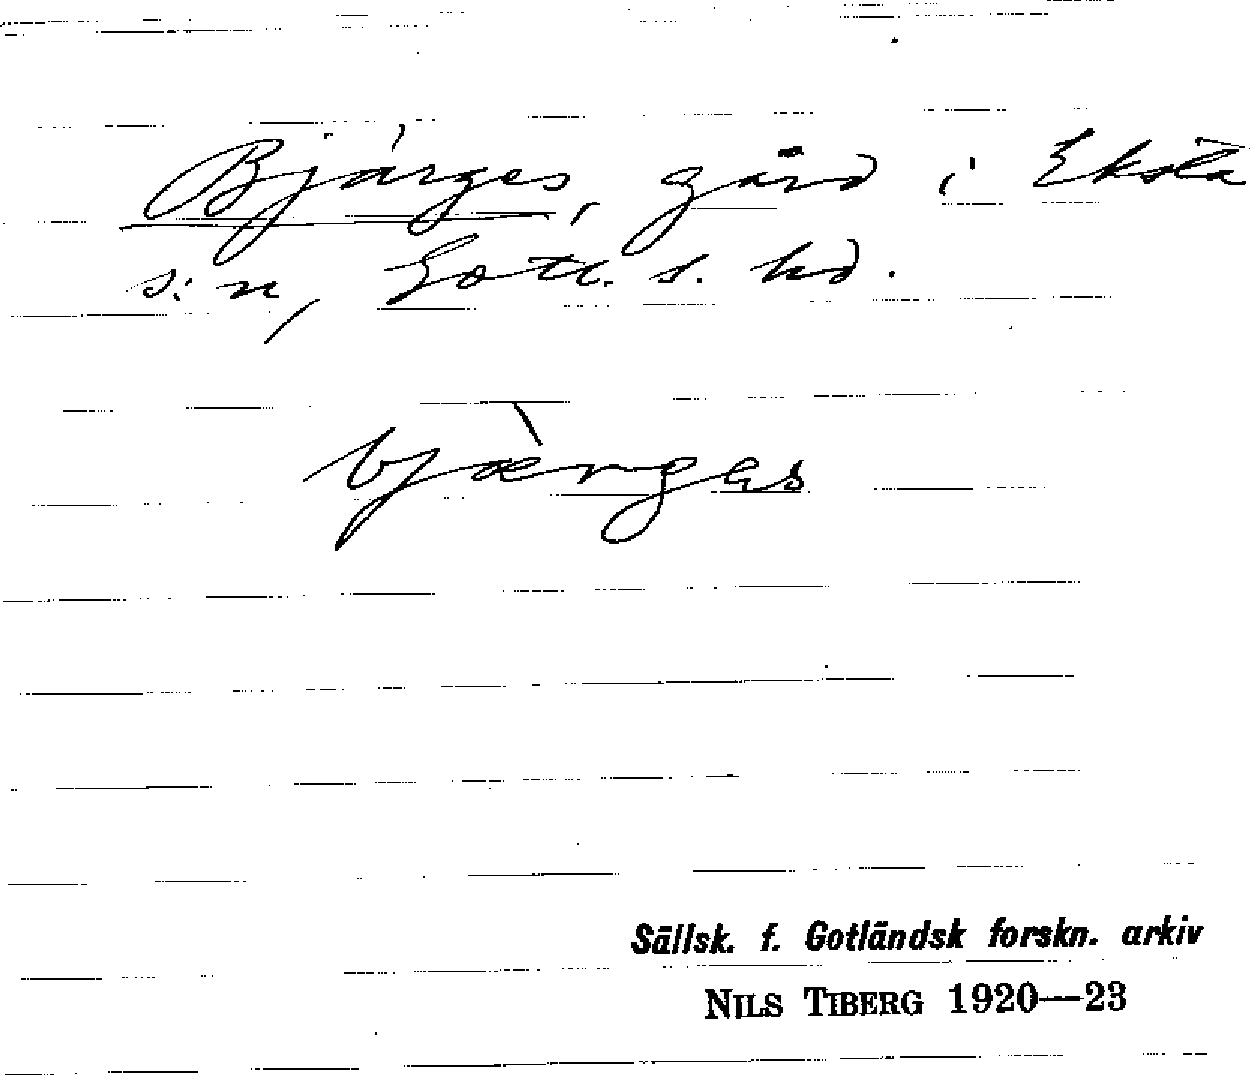 Bjärges, gård i Eksta
s:n, Gotl. s. hd.
bjærgas
Sällsk. f. Gotländsk forskn. arkiv
NILS TIBERG 1920—23